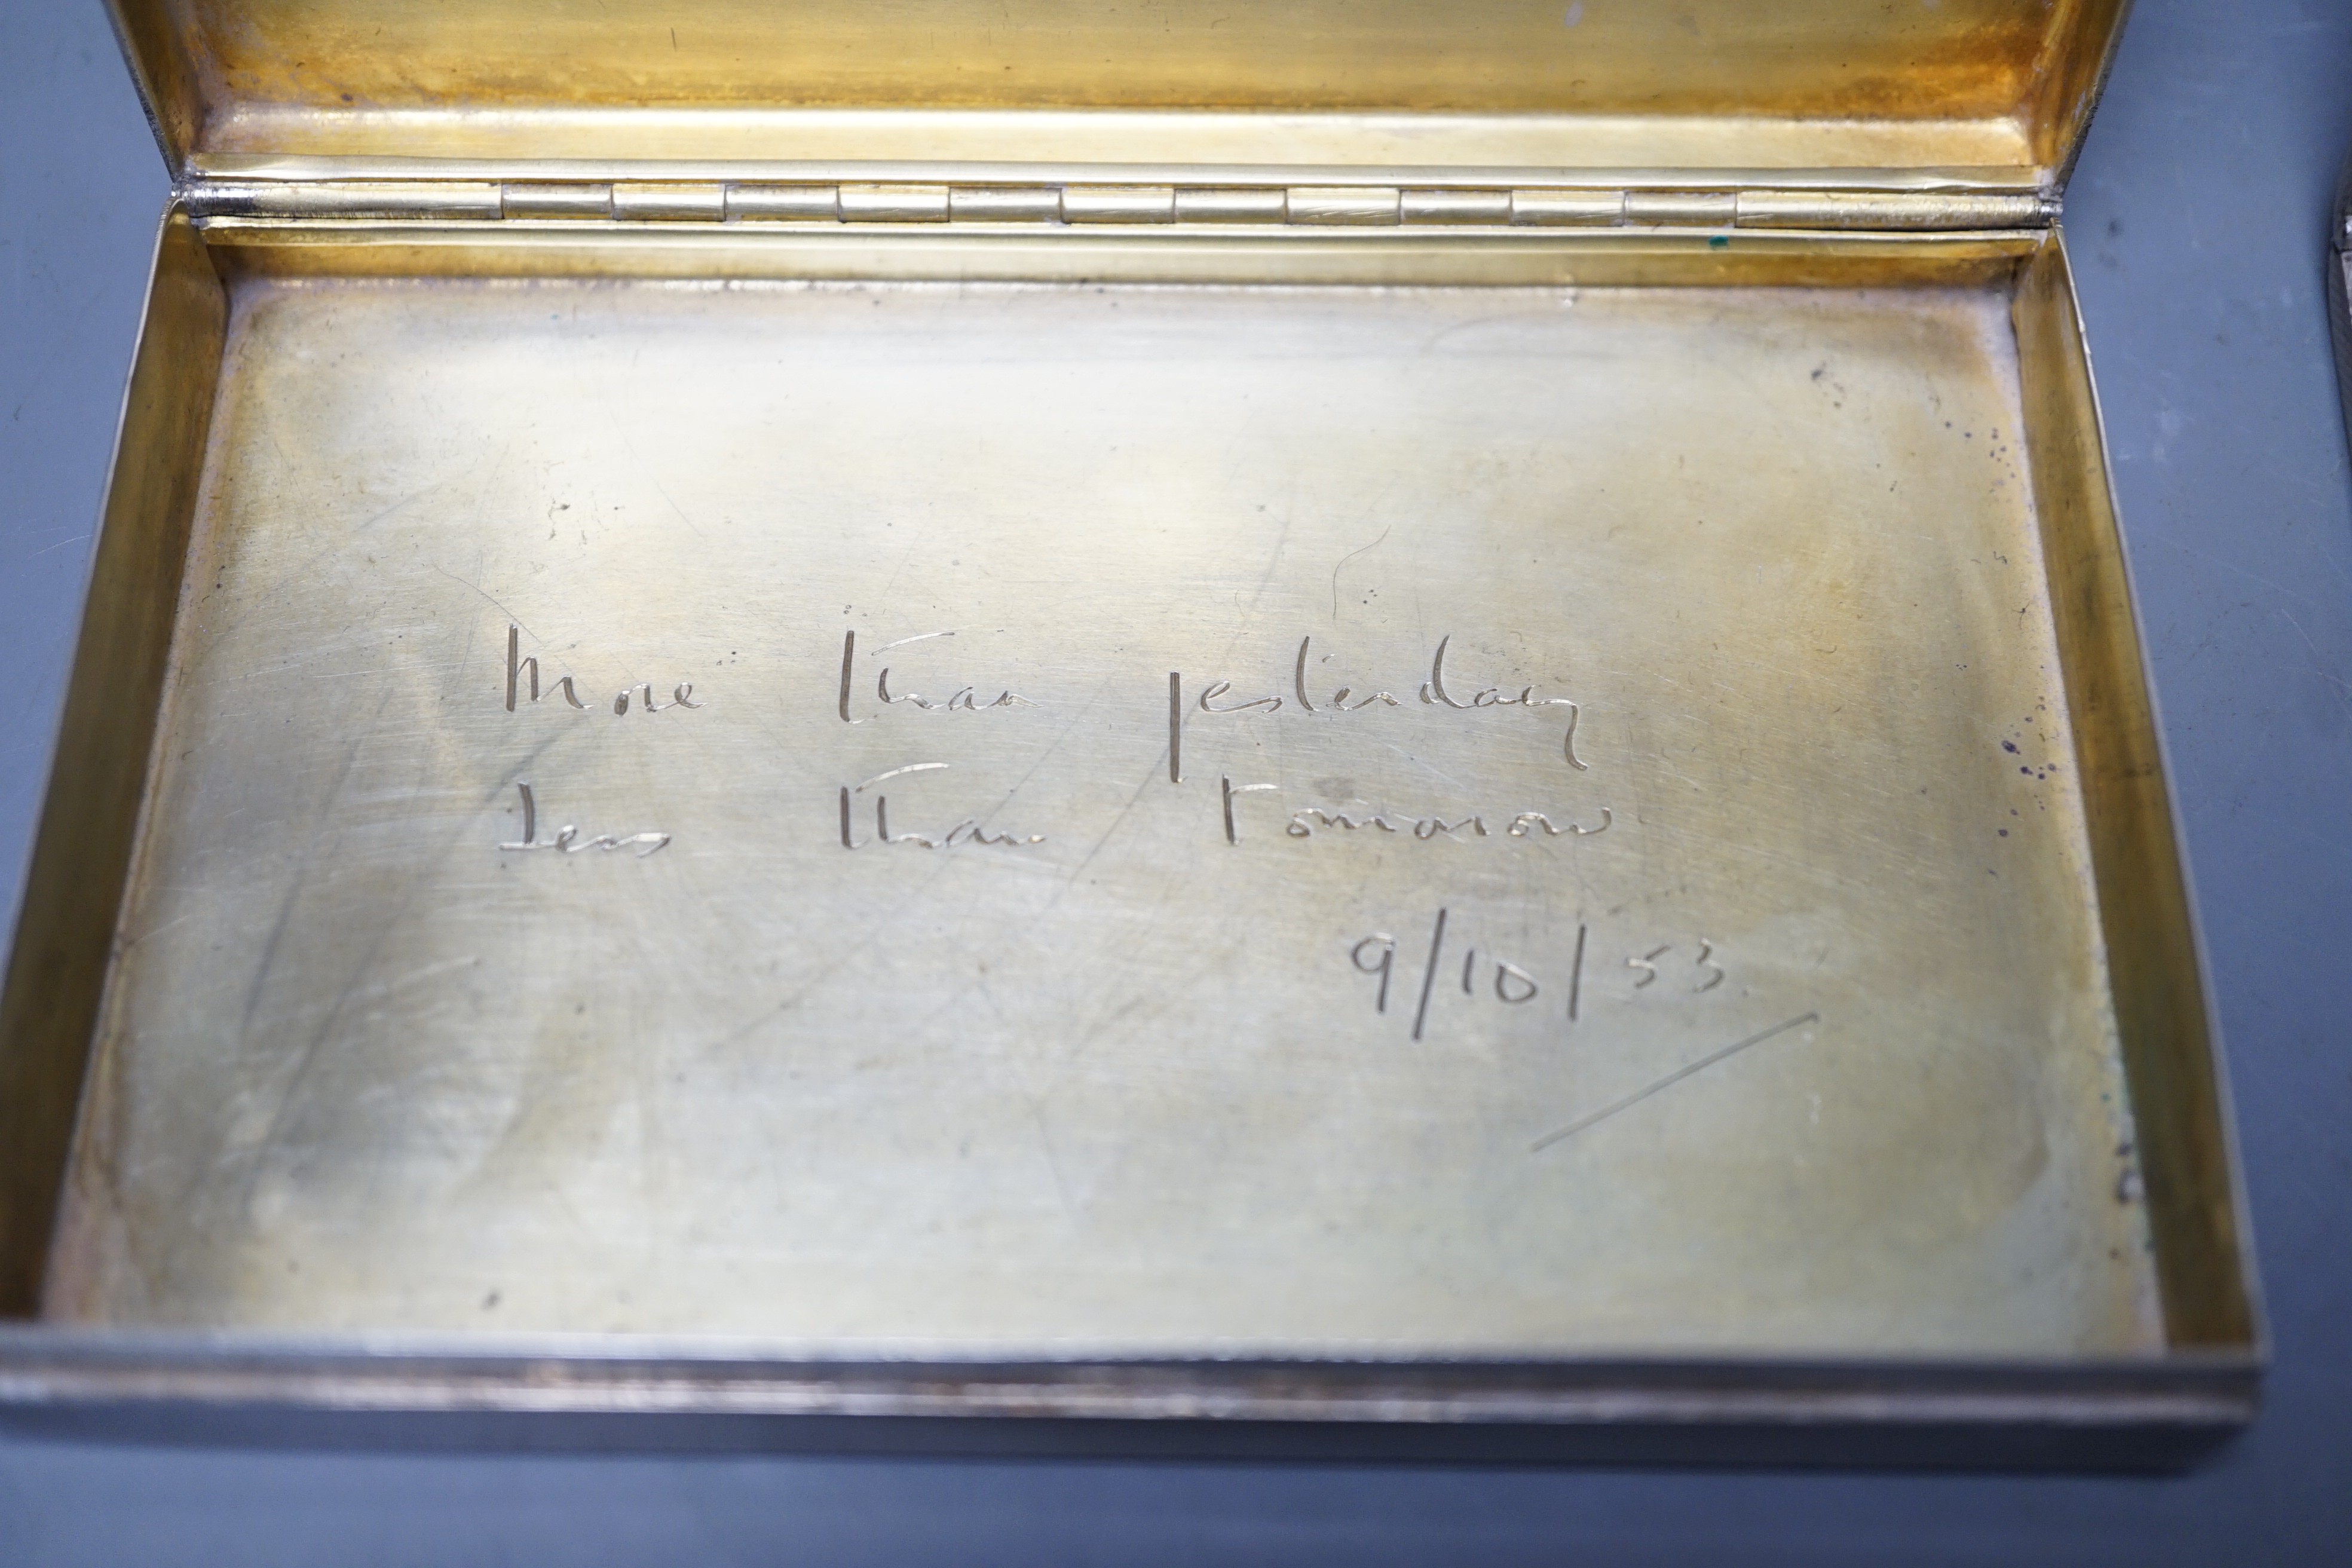 More than yesterday
Less than tomorow
9/10/53.